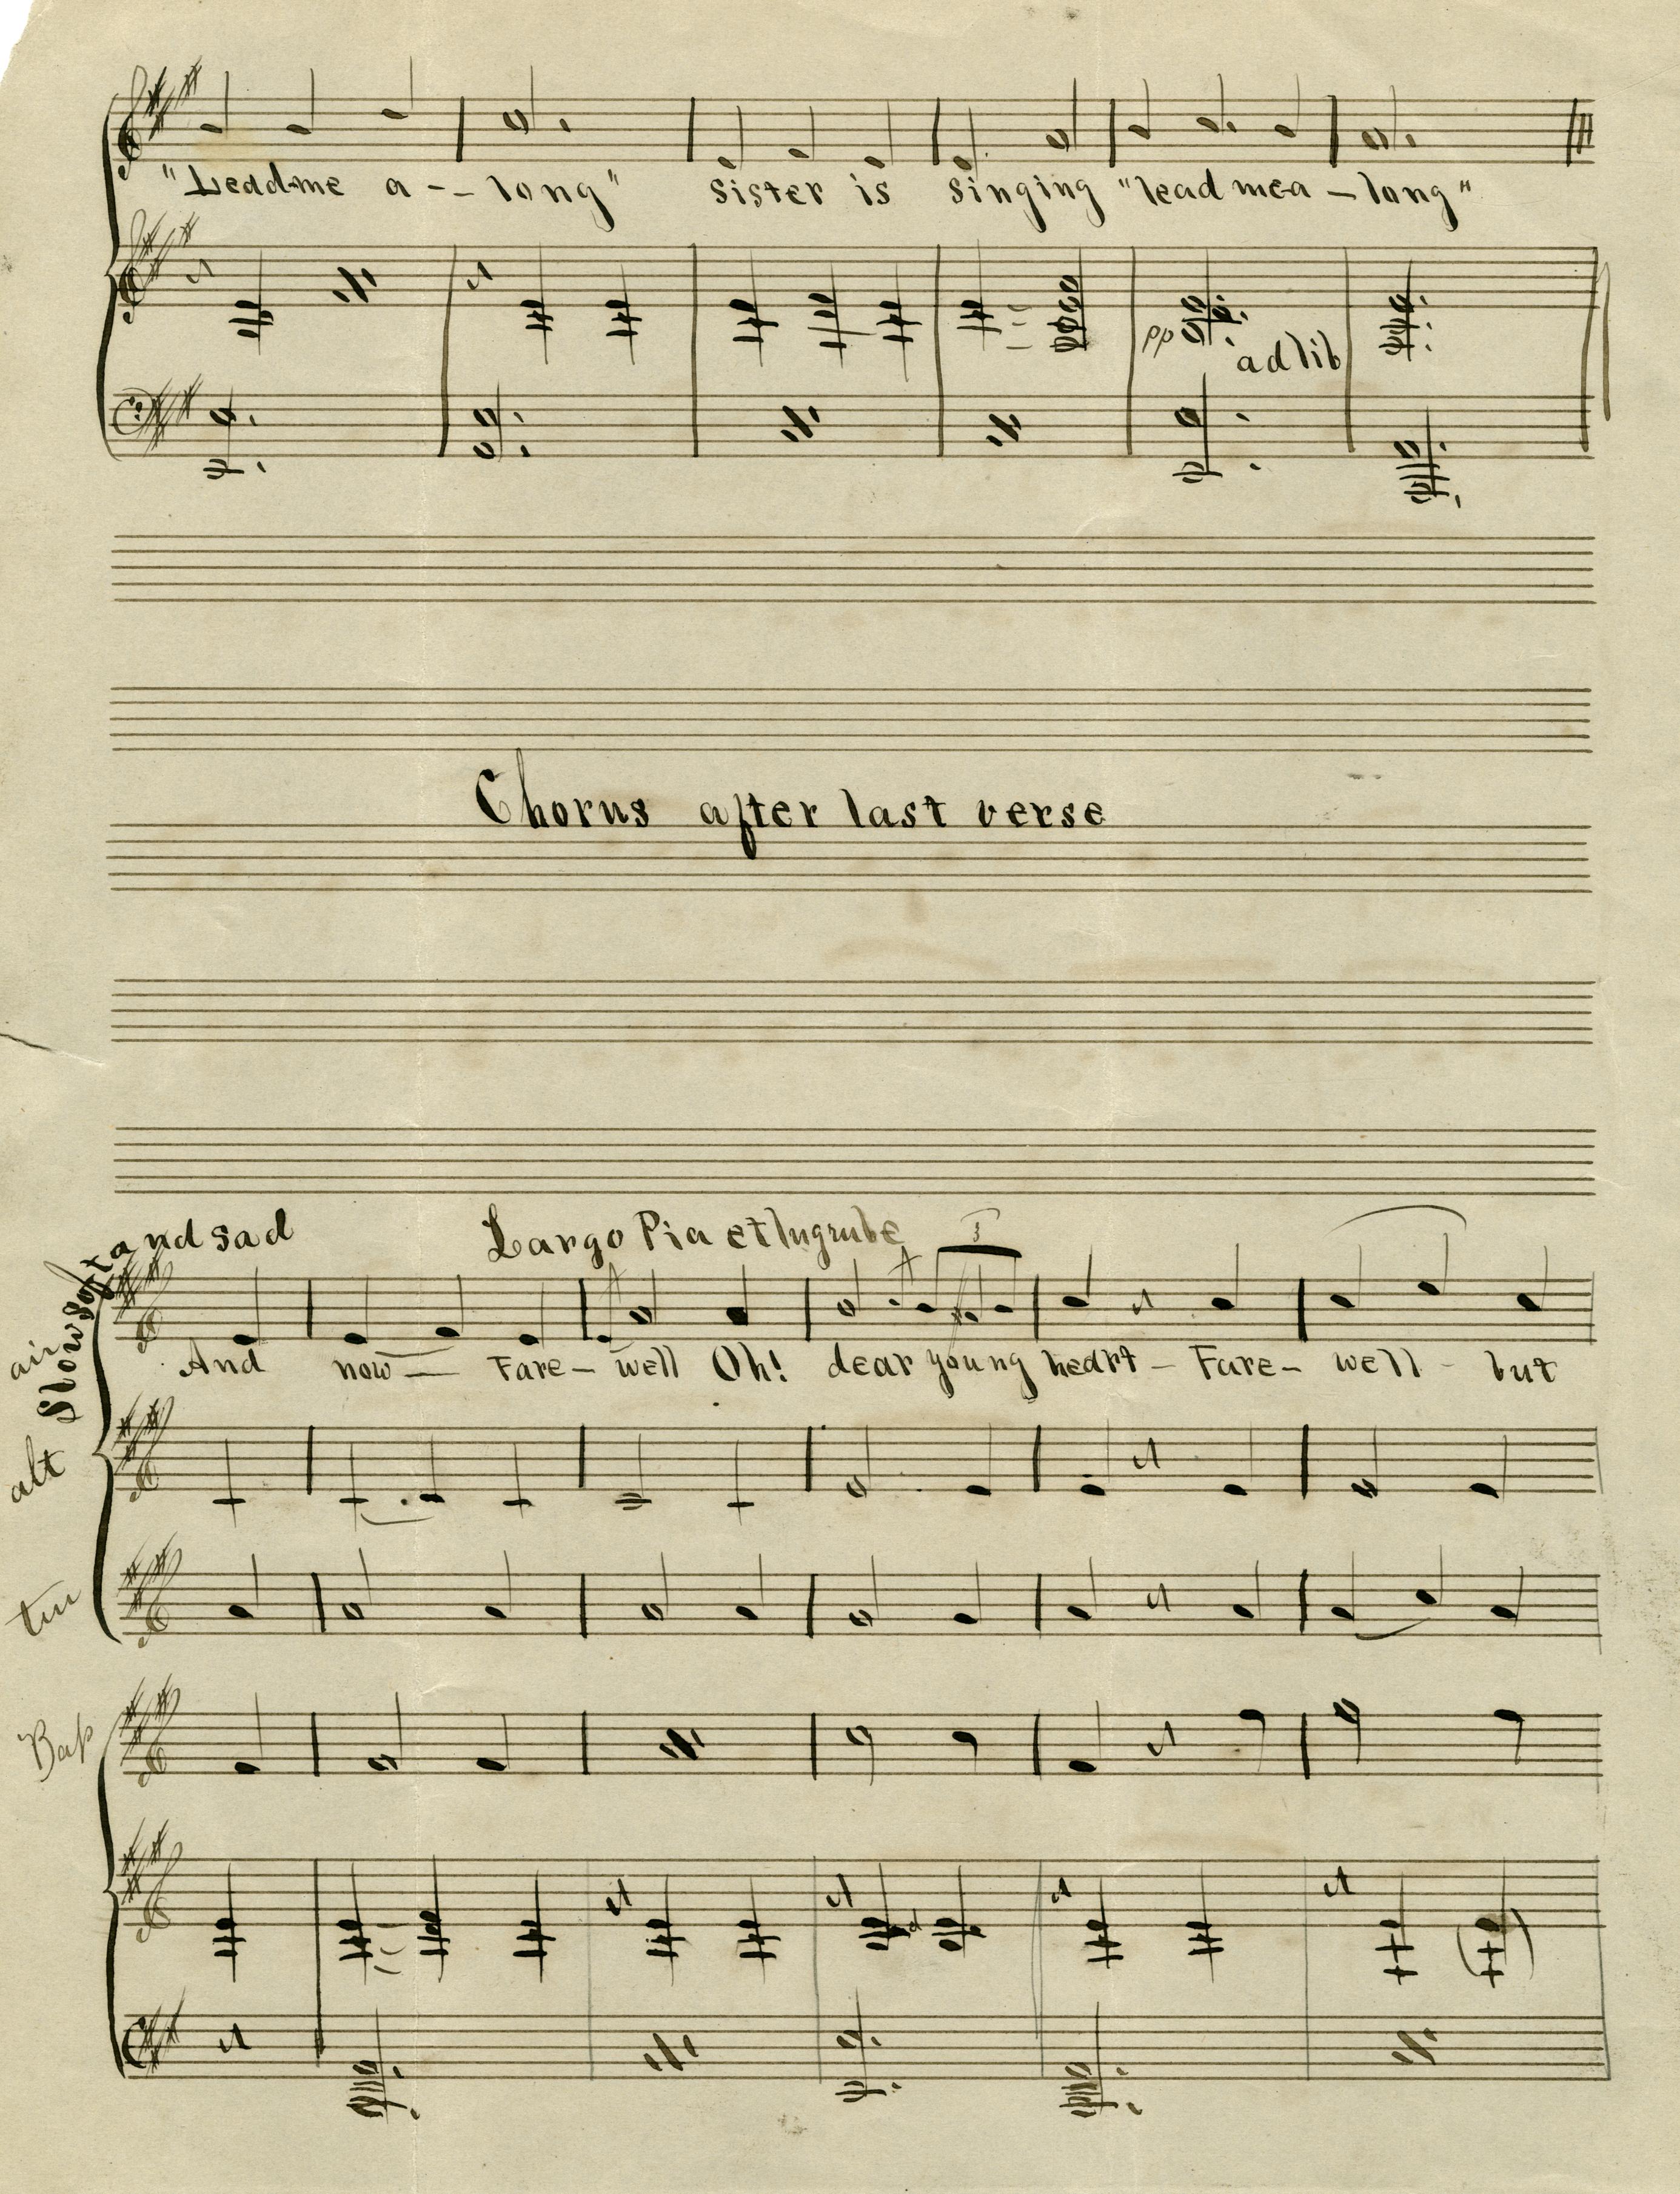 "Lead me a -- long" sister is singing "lead me a - long"
pp ad lib
Chorus after last verse
Slow soft and sad
Largo Pia et lugrube 3
air
And now — Fare - well Oh! dear young heart - Fare - well - but
alt
ten
Bass